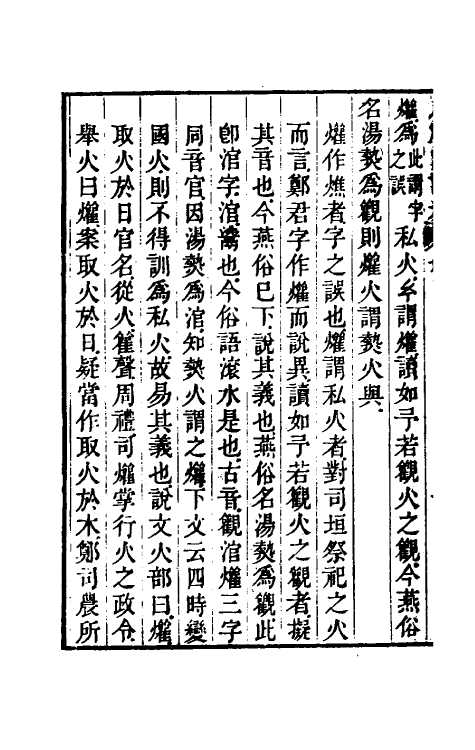 爟為此謂字之誤私火今謂爟讀如予若觀火之觀今燕俗
名湯熱為觀則爟火謂熱火與
爟作燋者字之誤也爟謂私火者對司垣祭祀之火
而言鄭君字作爟而說異讀如予若觀火之觀者擬
其音也今燕俗已下說其義也燕俗名湯熱為觀此
卽涫字涫鬻也今俗語滾水是也古音觀涫爟三字
同音官因湯熱為涫知熱火謂之爟下文云四時變
國火則不得訓為私火故易其義也說文火部曰爟
取火於日官名從火雚聲周禮司爟掌行火之政令
舉火曰爟案取火於日疑當作取火於木鄭司農所